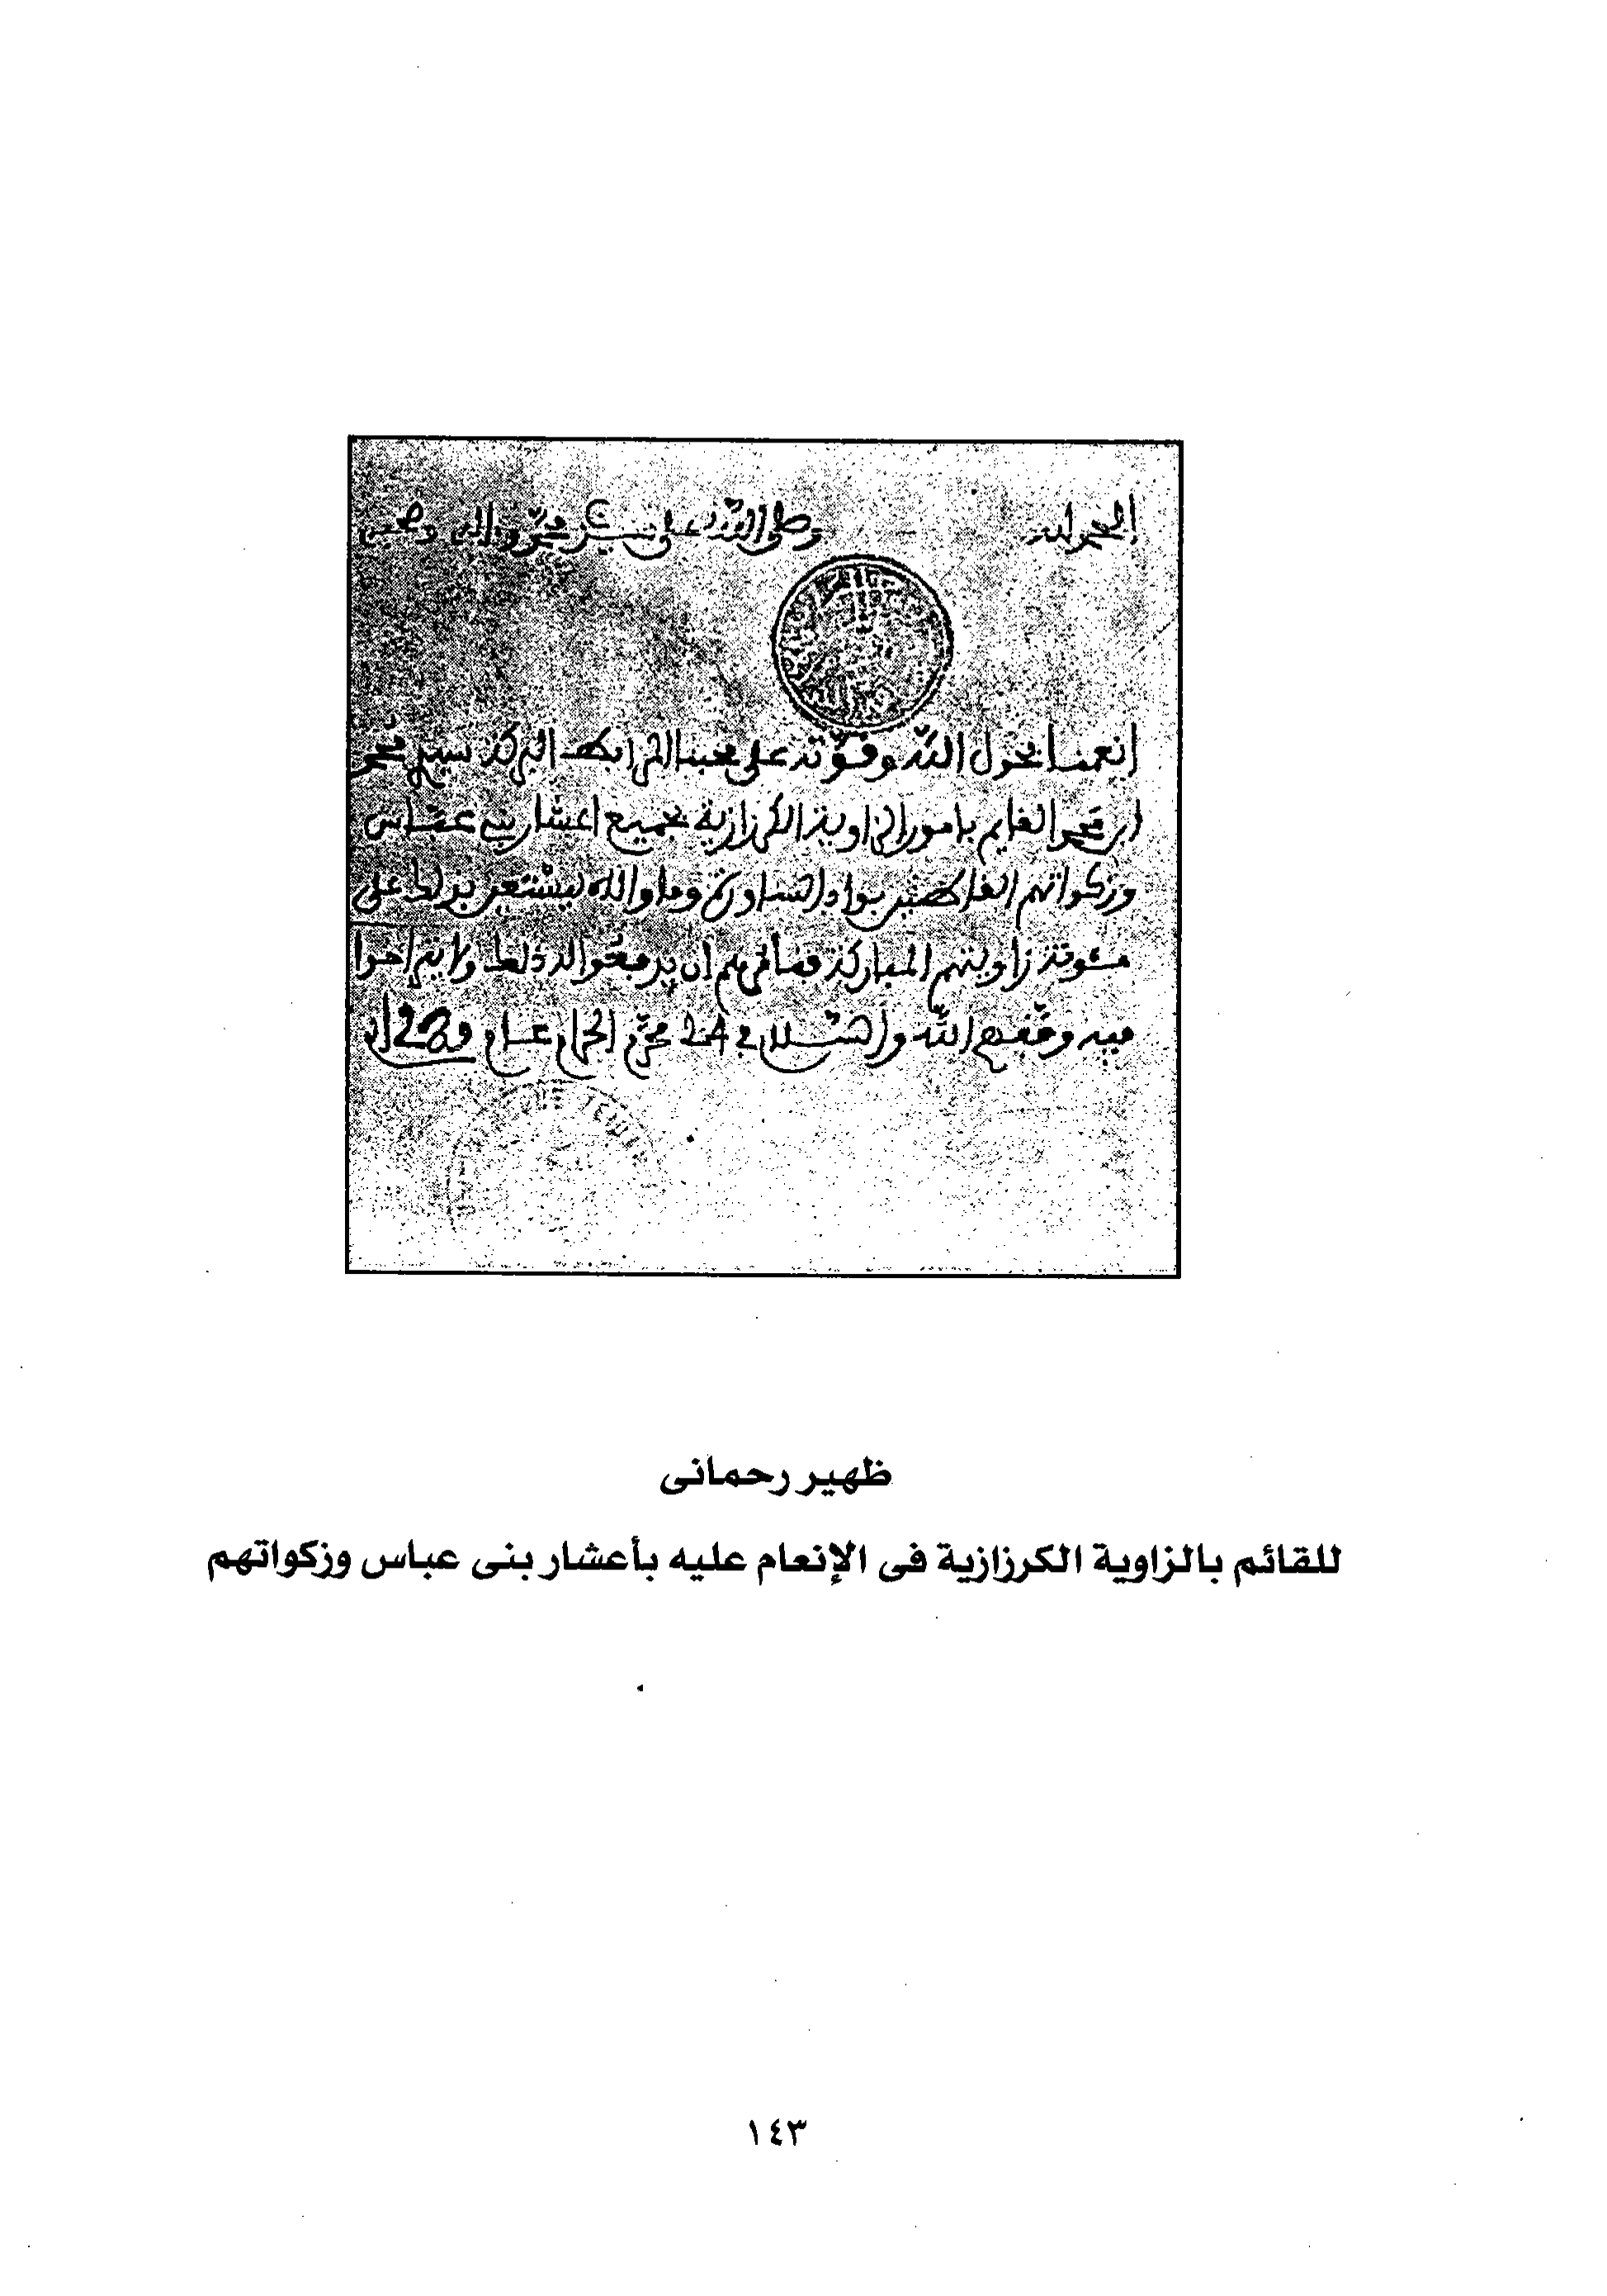 الحمد لله وصلى الله على سيدنا محمد وآله وصحبه
أنعمنا بحول الله وقوته على محبنا المرابط البركة سيدي محمد
ابن محمد القايم بامور الزاوية الكرزازية بجميع اعشار بني عباس
وزكواتهم القاطنين بواد الساورة وما والاه ليستعين بذلك على
مئونة زاويتهم المباركة فنأمرهم أن يدفعوا له ذلك ولا يتراخوا
فيه وفقهم الله والسلام في 24 محرم الحرام عام
ظهير رحمانى
للقائم بالزاوية الكرزازية فى الإنعام عليه بأعشار بنى عباس وزكواتهم
١٤٣